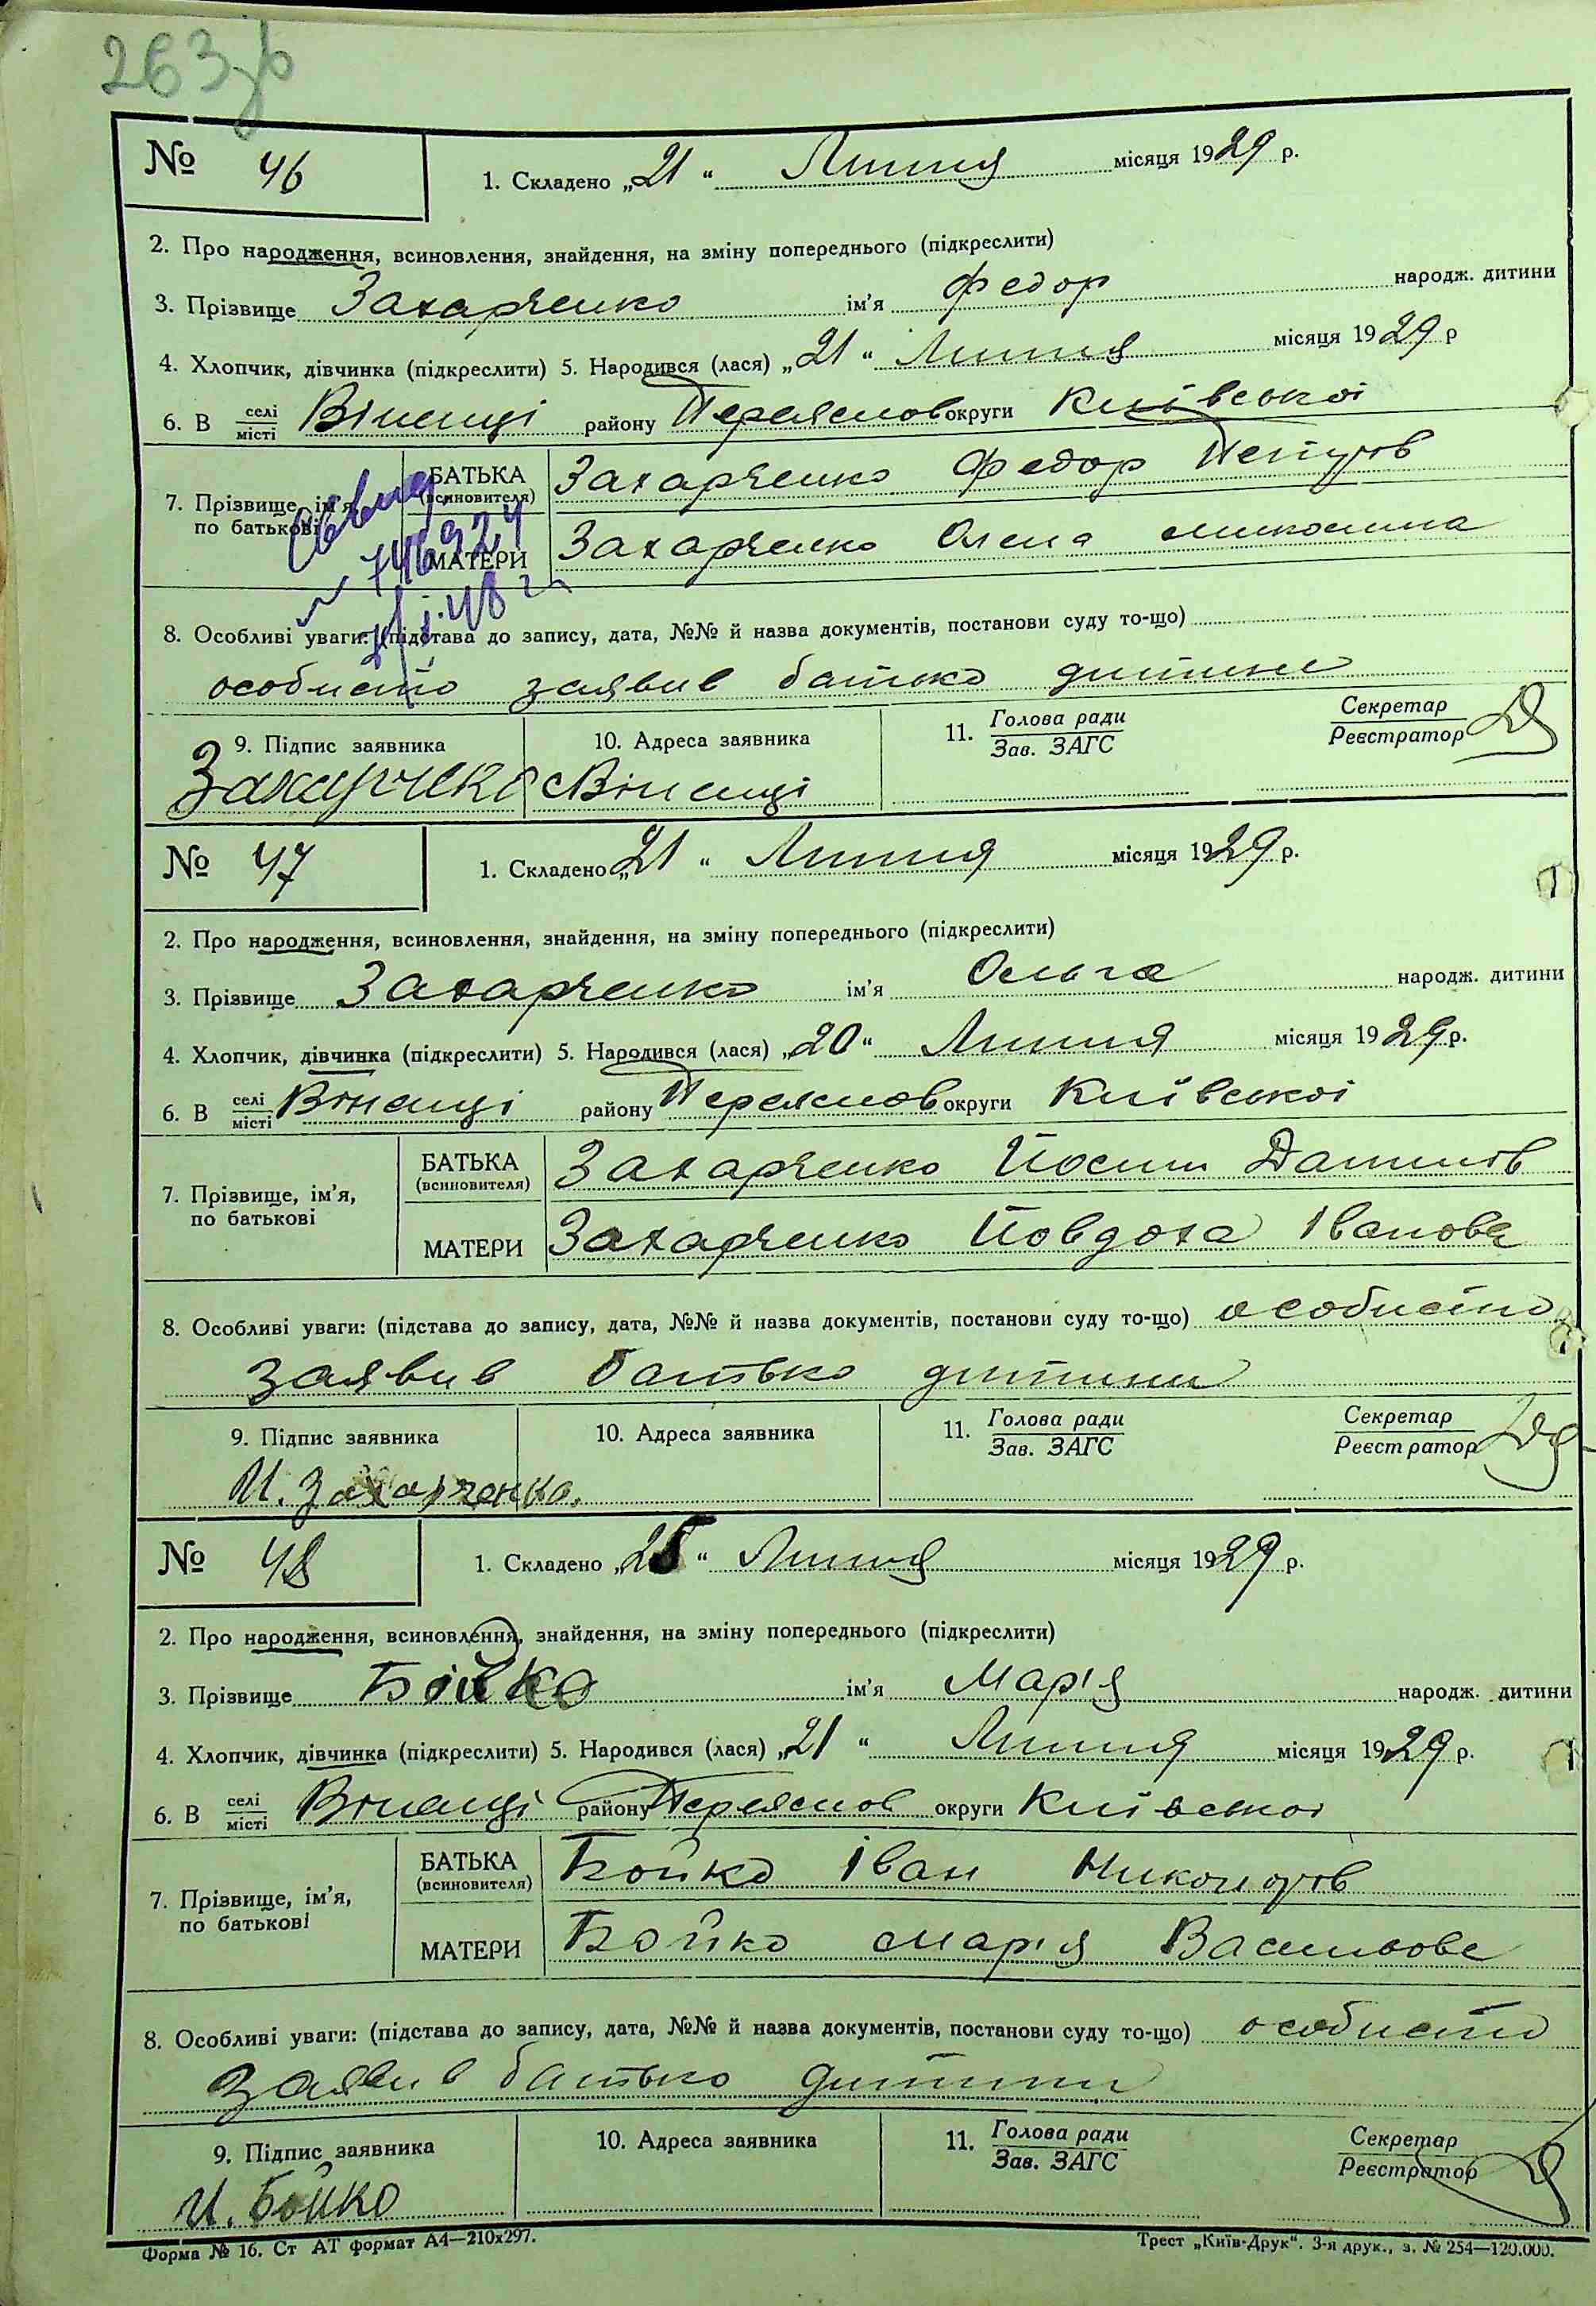 263зв
№ 46
1. Складено „21“ Липня місяця 1929 р.
2. Про народження, всиновлення, знайдення, на зміну попереднього (підкреслити)
3. Прізвище Захарченко ім'я Федор народж. дитини
4. Хлопчик, дівчинка (підкреслити) 5. Народився (лася) „21“ Липня місяця 1929 р
6. В селі/місті Віненці району Переяслов округи Київської
7. Прізвище, ім'я, по батькові
БАТЬКА (всиновителя) Захарченко Федор Петров
МАТЕРИ Захарченко Олена
746924
8. Особливі уваги: (підстава до запису, дата, №№ й назва документів, постанови суду то-що)
особисто заявив батько дитини
9. Підпис заявника
10. Адреса заявника
11. Голова ради / Зав. ЗАГС
Секретар / Реєстратор
Захарченко Віненці
№ 47
1. Складено „21“ Липня місяця 1929 р.
2. Про народження, всиновлення, знайдення, на зміну попереднього (підкреслити)
3. Прізвище Захарченко ім'я Ольга народж. дитини
4. Хлопчик, дівчинка (підкреслити) 5. Народився (лася) „20“ Липня місяця 1929 р.
6. В селі/місті Віненці району Переяслов округи Київської
7. Прізвище, ім'я, по батькові
БАТЬКА (всиновителя) Захарченко Йосип Данилів
МАТЕРИ Захарченко Йовдоха Іванова
8. Особливі уваги: (підстава до запису, дата, №№ й назва документів, постанови суду то-що) особисто
заявив батько дитини
9. Підпис заявника
10. Адреса заявника
11. Голова ради / Зав. ЗАГС
Секретар / Реєстратор
И. Захарченко.
№ 48
1. Складено „25“ Липня місяця 1929 р.
2. Про народження, всиновлення, знайдення, на зміну попереднього (підкреслити)
3. Прізвище Бойко ім'я Марія народж. дитини
4. Хлопчик, дівчинка (підкреслити) 5. Народився (лася) „21“ Липня місяця 1929 р.
6. В селі/місті Віненці району Переяслов округи Київської
7. Прізвище, ім'я, по батькові
БАТЬКА (всиновителя) Бойко Іван
МАТЕРИ Бойко Марія Васильова
8. Особливі уваги: (підстава до запису, дата, №№ й назва документів, постанови суду то-що) особисто
заявив батько дитини
9. Підпис заявника
10. Адреса заявника
11. Голова ради / Зав. ЗАГС
Секретар / Реєстратор
И. Бойко
Форма № 16. Ст АТ формат А4—210х297.
Трест „Київ-Друк“. 3-я друк., з. № 254—120.000.